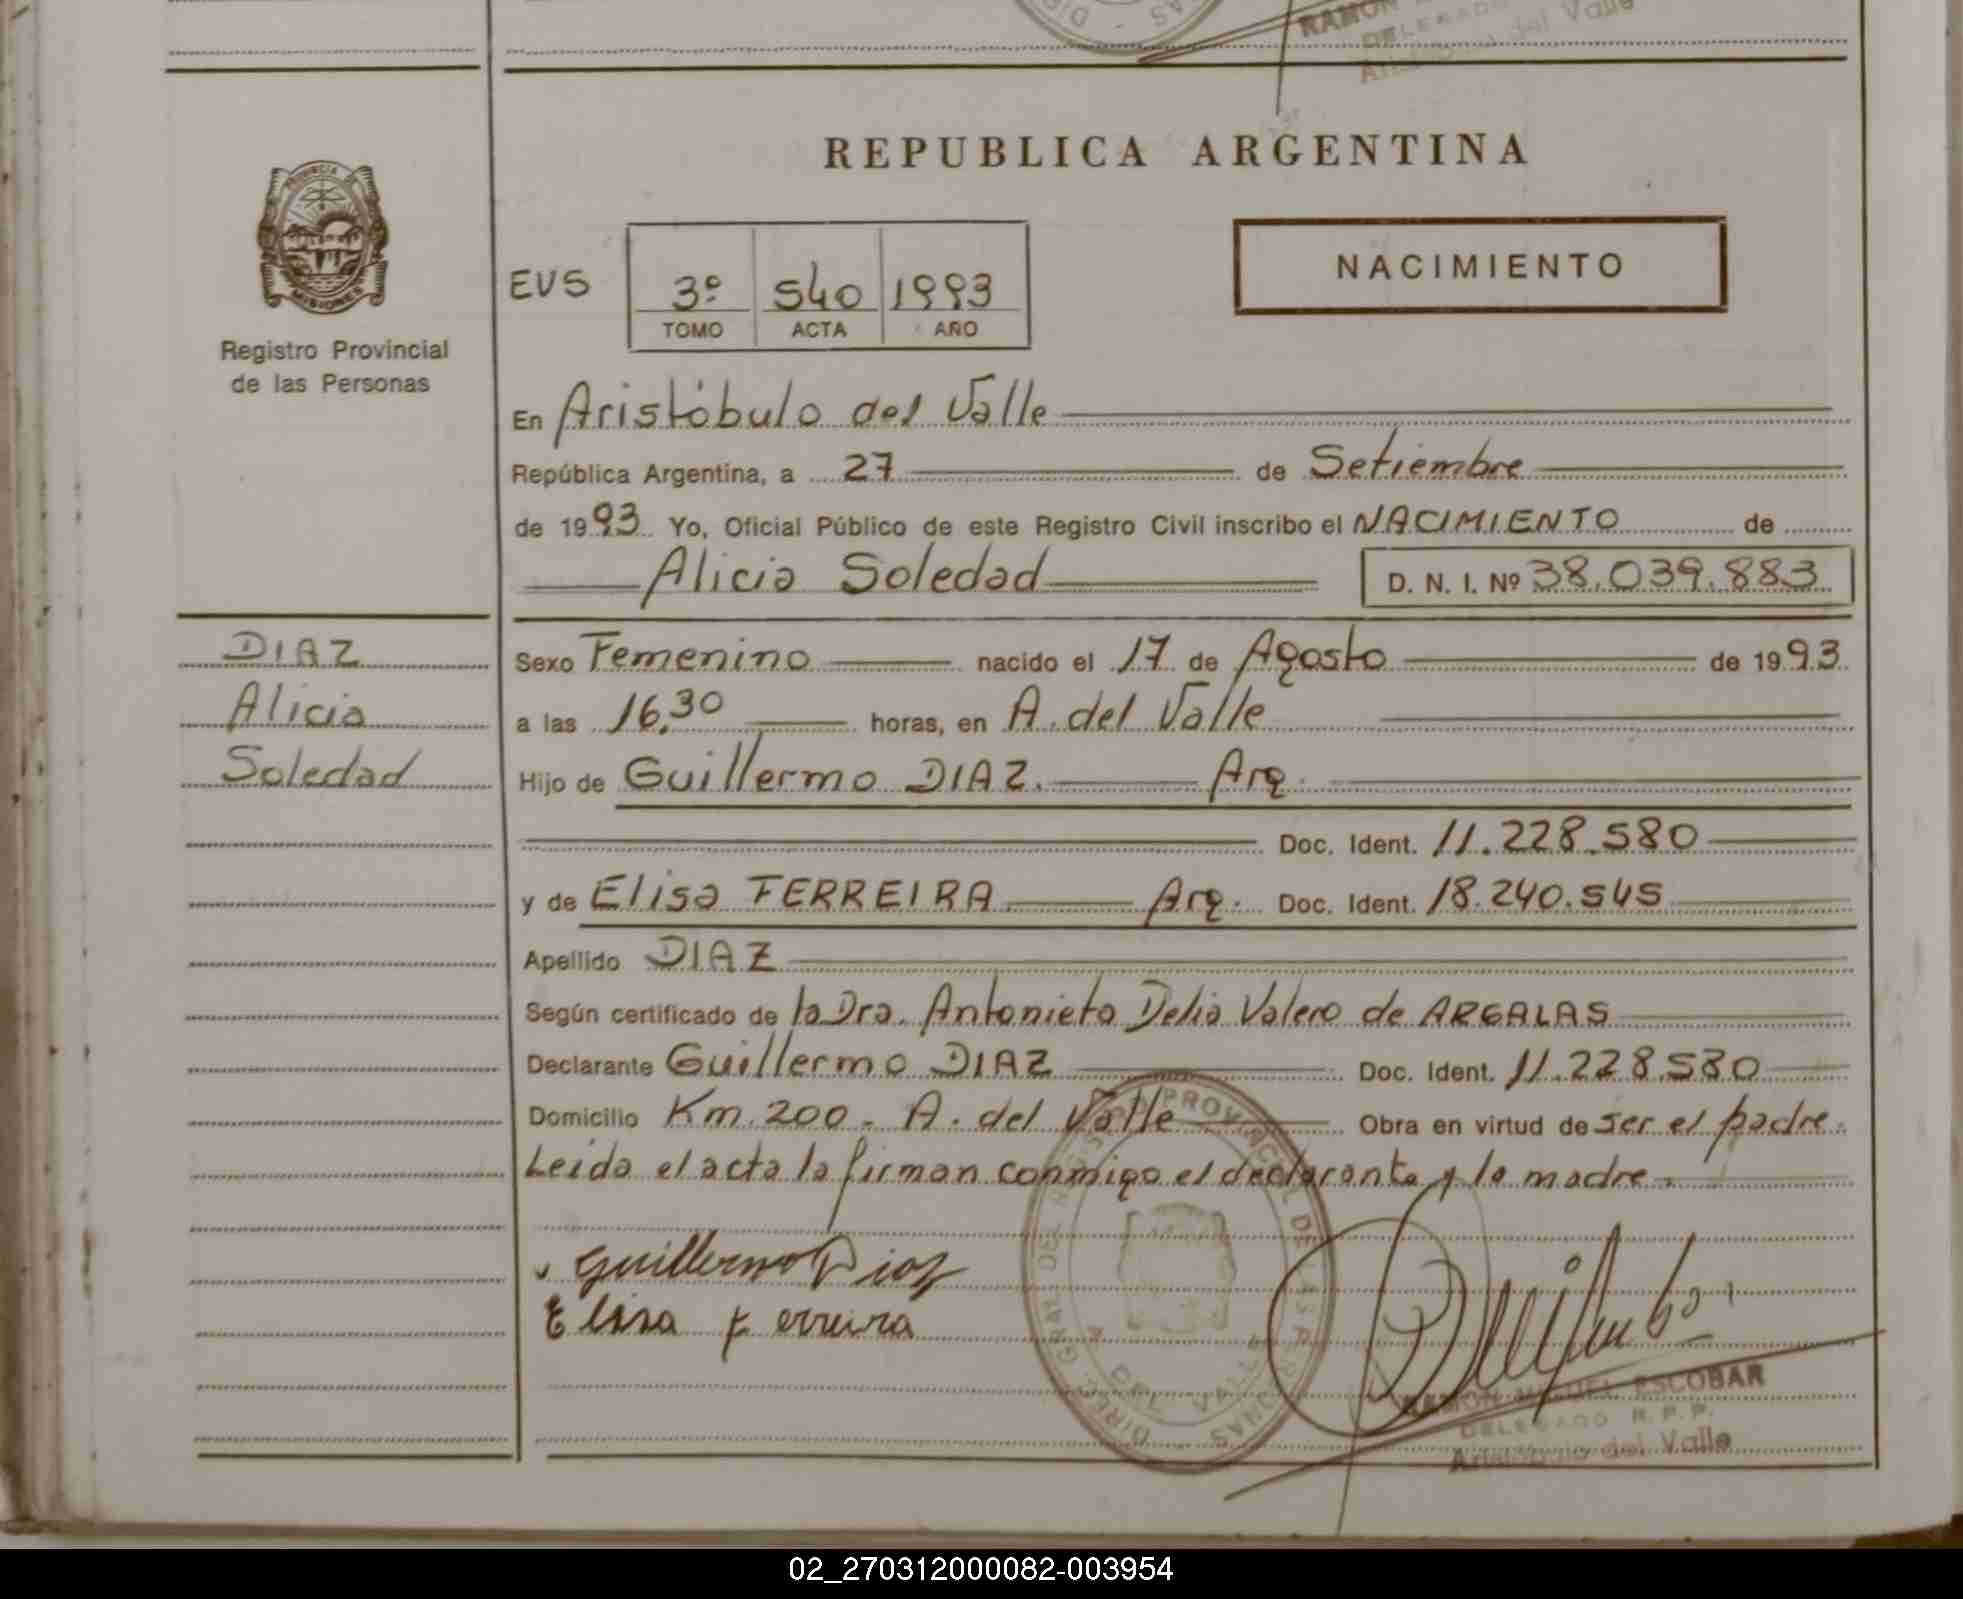 RAMON
DELEGADO
del Valle
REPUBLICA ARGENTINA
PROVINCIA DE
MISIONES
Registro Provincial
de las Personas
EVS 3º 540 1993
TOMO ACTA AÑO
NACIMIENTO
En Aristóbulo del Valle
República Argentina, a 27 de Setiembre
de 1993 Yo, Oficial Público de este Registro Civil inscribo el NACIMIENTO de
Alicia Soledad D. N. I. Nº 38.039.883
DIAZ
Alicia
Soledad
Sexo Femenino nacido el 17 de Agosto de 1993
a las 16,30 horas, en A. del Valle
Hijo de Guillermo DIAZ. Arg.
Doc. Ident. 11.228.580
y de Elisa FERREIRA Arg. Doc. Ident. 18.240.545
Apellido DIAZ
Según certificado de la Dra. Antonieta Delia Valero de ARGALAS
Declarante Guillermo DIAZ Doc. Ident. 11.228.580
Domicilio Km. 200 - A. del Valle Obra en virtud de ser el padre.
Leida el acta la firman conmigo el declarante y la madre.
Guillermo Diaz
Elisa Ferreira
DIREC. GRAL. DEL REGISTRO PROVINCIAL DE LAS PERSONAS
A. DEL VALLE
RAMON MIGUEL ESCOBAR
DELEGADO R.P.P.
Aristóbulo del Valle
02_270312000082-003954